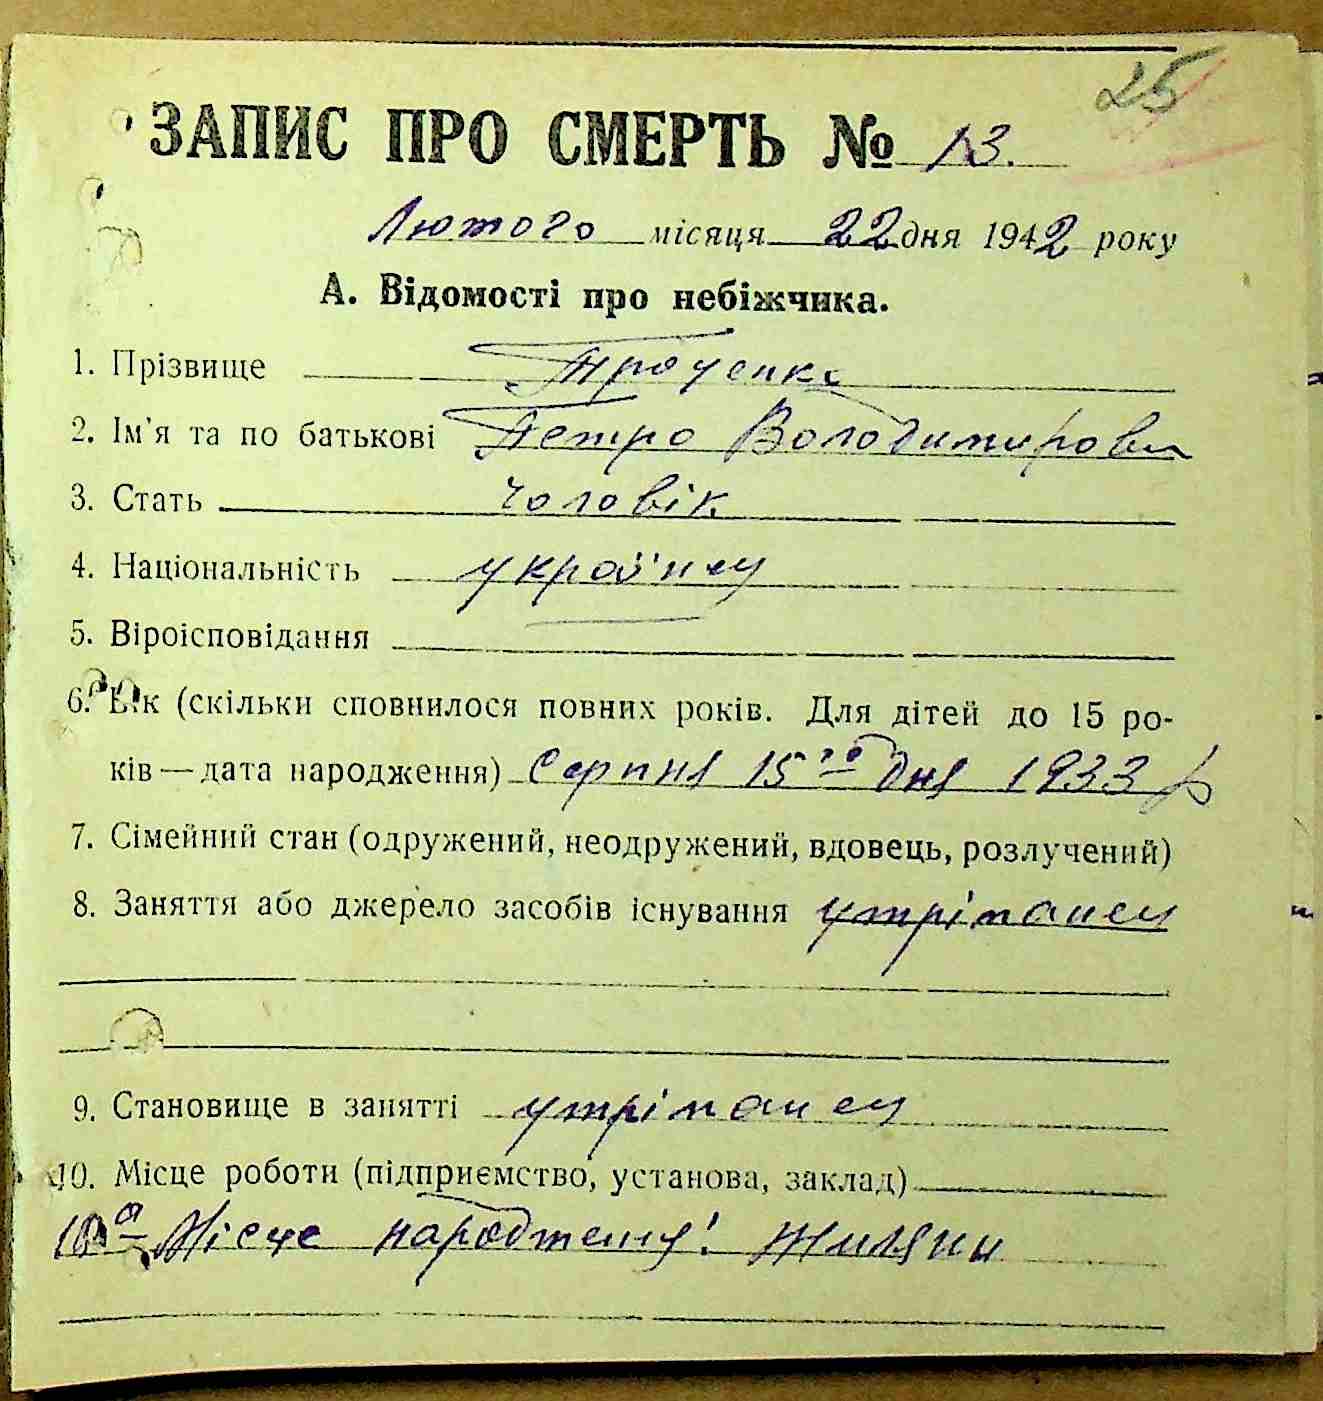 25
ЗАПИС ПРО СМЕРТЬ № 13.
Лютого місяця 22 дня 1942 року
А. Відомості про небіжчика.
1. Прізвище Троценко
2. Ім'я та по батькові Петро Володимирови
3. Стать чоловік
4. Національність українец
5. Віроісповідання
6. Вік (скільки сповнилося повних років. Для дітей до 15 ро-
ків — дата народження) Серпня 15го дня 1933 р
7. Сімейний стан (одружений, неодружений, вдовець, розлучений)
8. Заняття або джерело засобів існування утріманец
9. Становище в занятті утріманец
10. Місце роботи (підприємство, установа, заклад)
10а Місце народження: Жиляни